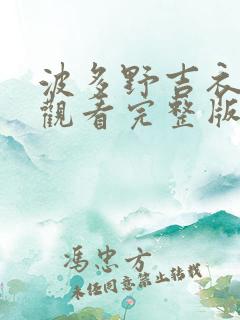 波多野吉衣
觀看完整版
馮忠方
未经同意禁止转载